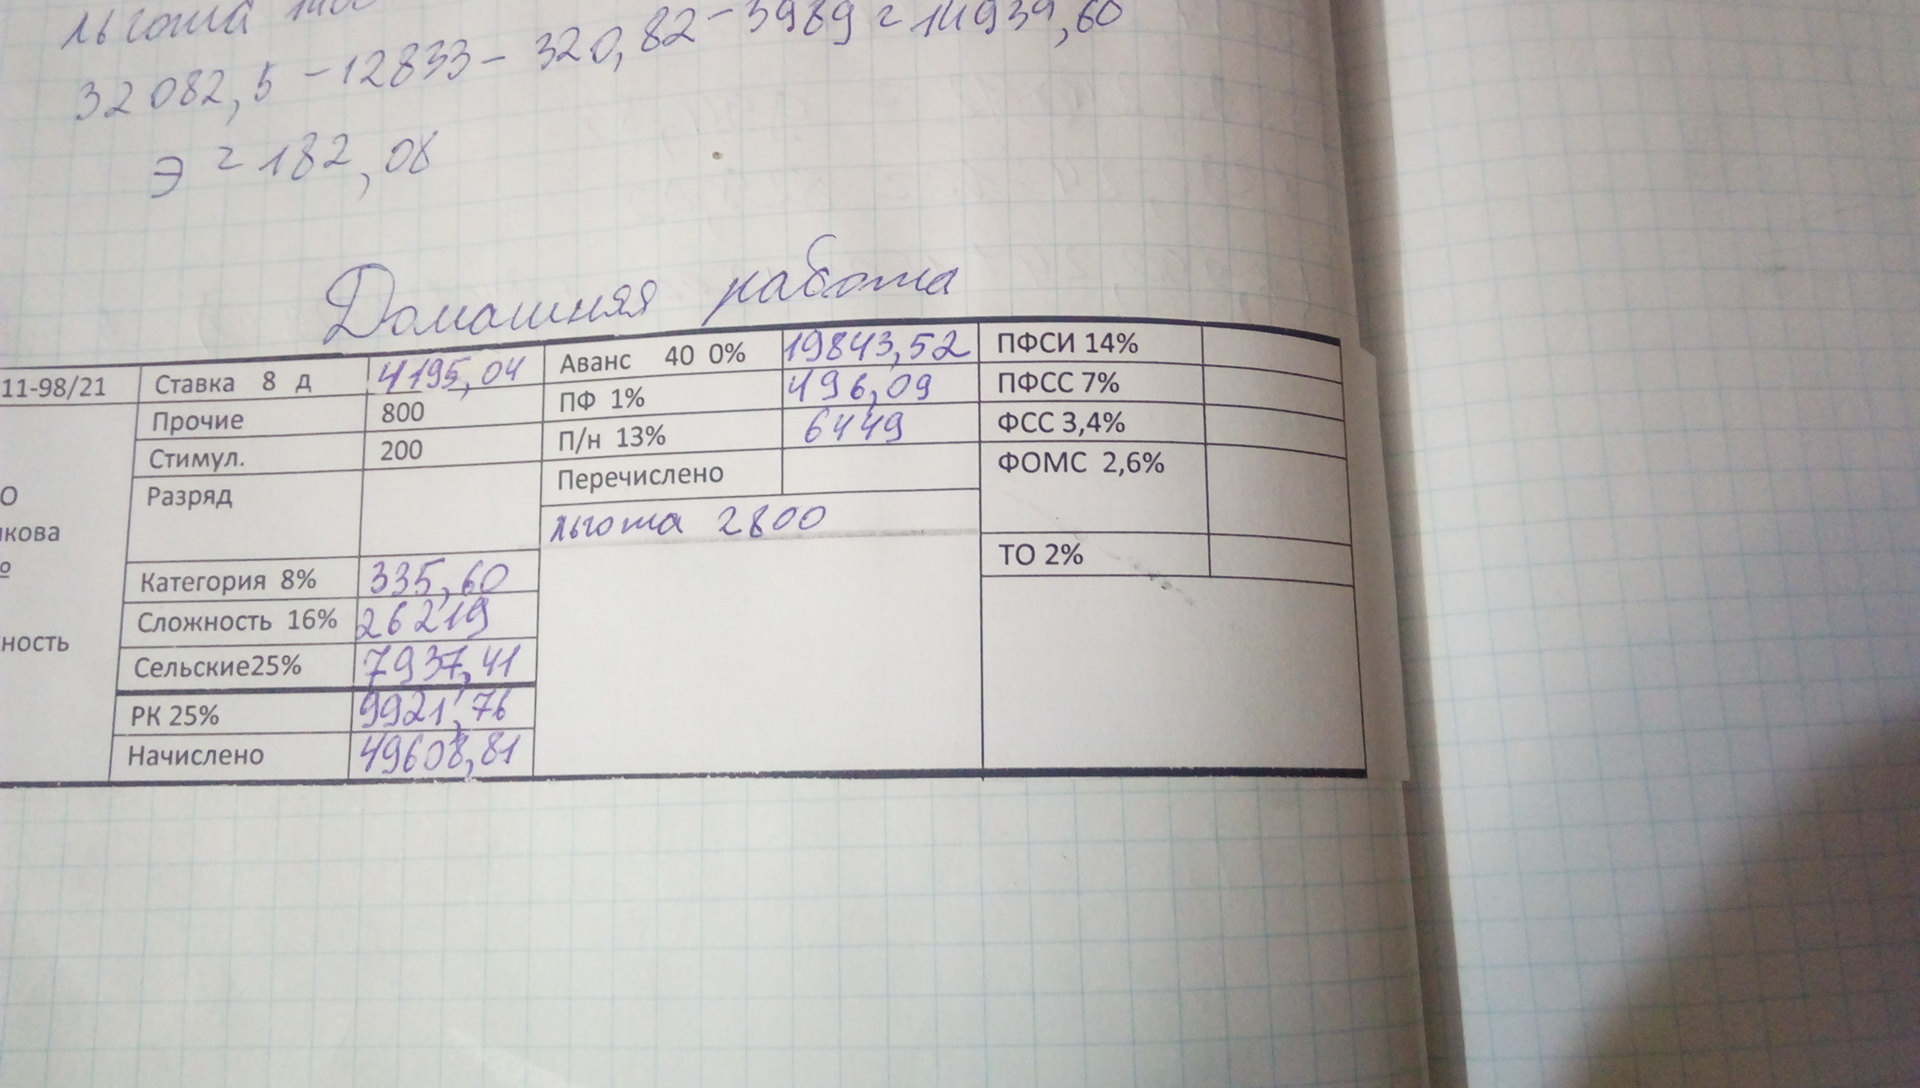 льгота
32082,5 - 12833 - 320,82 - 3989 = 14939,60
Э = 182,08
Домашняя работа
11-98/21
Ставка 8 д 4195,04
Прочие 800
Стимул. 200
Разряд
Категория 8% 335,60
Сложность 16% 26219
Сельские25% 7937,41
РК 25% 9921,76
Начислено 49608,81
О
кова
№
ность
Аванс 40 0% 19843,52
ПФ 1% 496,09
П/н 13% 6449
Перечислено
льгота 2800
ПФСИ 14%
ПФСС 7%
ФСС 3,4%
ФОМС 2,6%
ТО 2%